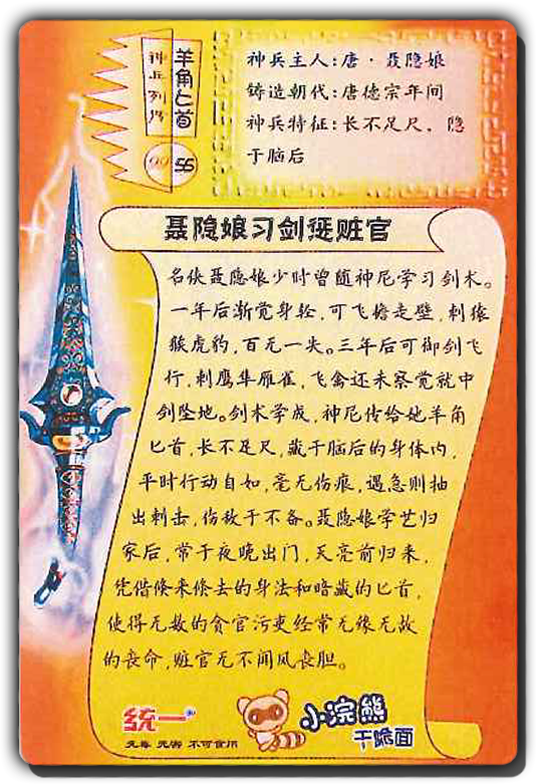 羊角匕首
神兵列传
0056
神兵主人:唐·聂隐娘
铸造朝代:唐德宗年间
神兵特征:长不足尺,隐
于脑后
聂隐娘习剑惩赃官
名侠聂隐娘少时曾随神尼学习剑术。
一年后渐觉身轻,可飞檐走壁,刺猿
猴虎豹,百无一失。三年后可御剑飞
行,刺鹰隼雁雀,飞禽还未察觉就中
剑坠地。剑术学成,神尼传给她羊角
匕首,长不足尺,藏于脑后的身体内,
平时行动自如,毫无伤痕,遇急则抽
出刺击,伤敌于不备。聂隐娘学艺归
家后,常于夜晚出门,天亮前归来,
凭借倏来倏去的身法和暗藏的匕首,
使得无数的贪官污吏经常无缘无故
的丧命,赃官无不闻风丧胆。
统一®
小浣熊
干脆面
无毒 无害 不可食用